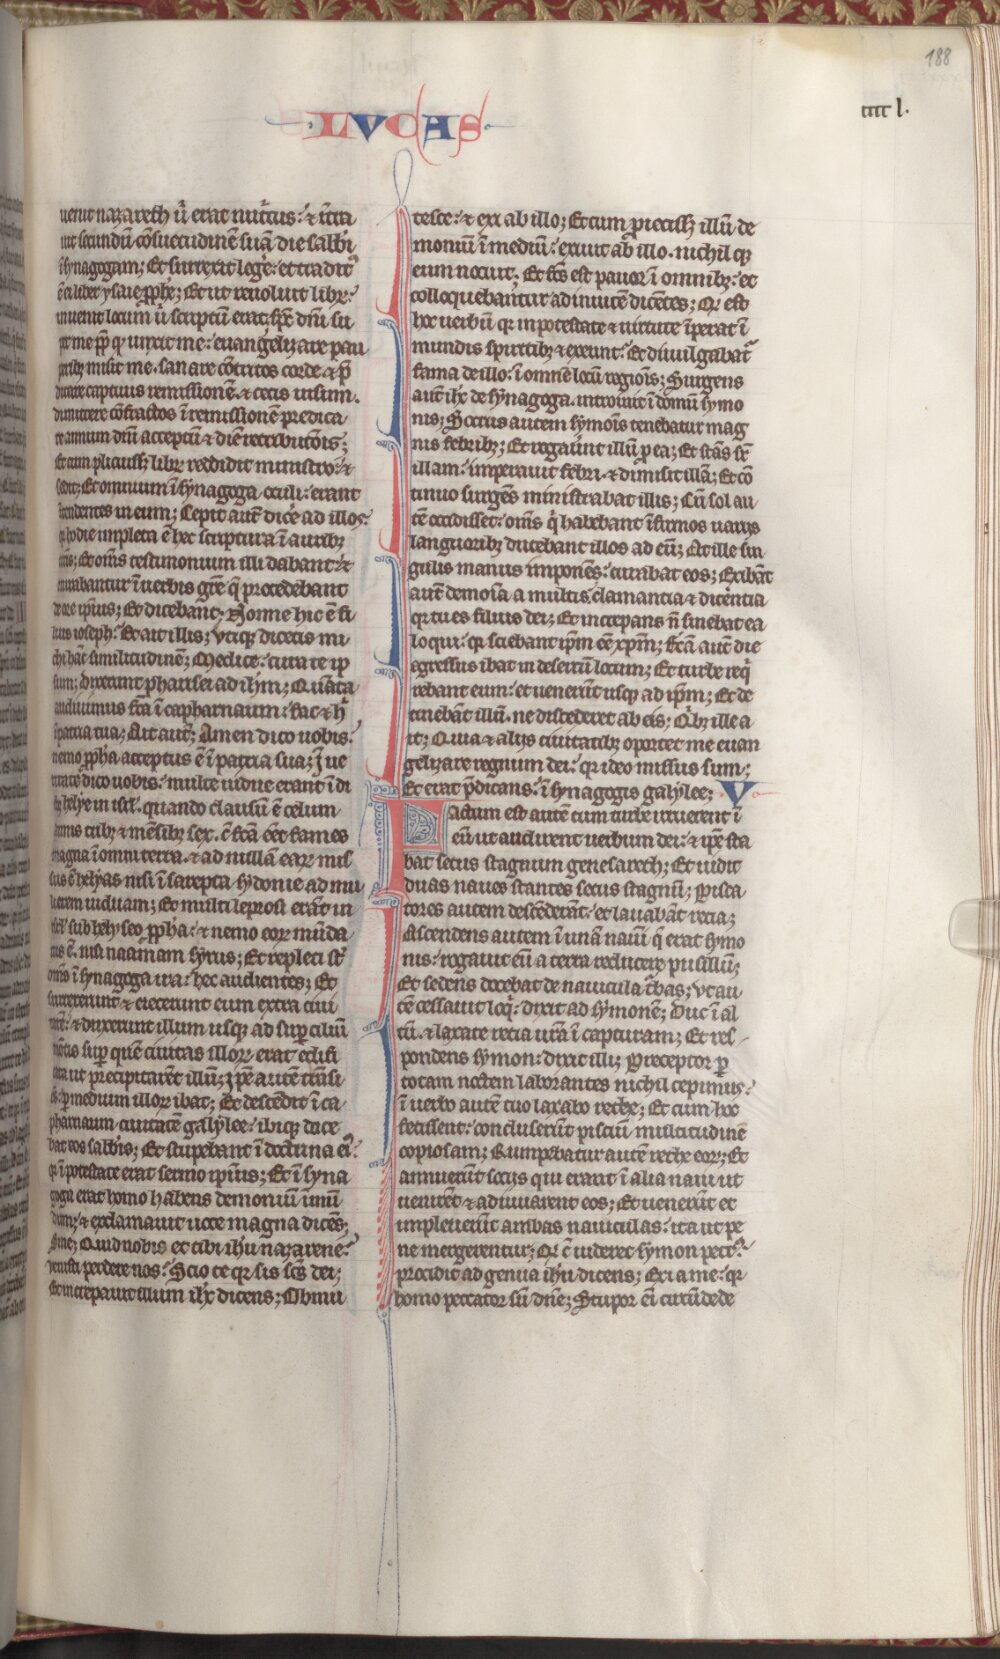 188
LVCAS
iiii l.
uenit nazareth ũ erat nut̃tus: ⁊ ĩtra
uit secundũ cõsuetudinẽ suã die sabb̃i
ĩ synagogam; Et surrexit leg̃e: et tradit᷒
ẽ ei liber ysaie ꝓph̃e; Et ut reuoluit libr̃:
inuenit locum ũ scriptũ erat; sp̃c dñi su
per me ꝓp̃ qͥ unxit me: euangelizare pau
ꝑibꝫ misit me. sanare cõtritos corde ⁊ p̃
dicare captiuis remissionẽ. ⁊ cecis uisum.
dimittere cõfractos ĩ remissionẽ predica
re annum dñi acceptũ ⁊ diẽ retributiõis;
Et cum plicuissꝫ libr̃ reddidit ministro: ⁊
sedit; Et omnium ĩ synagoga oculi: erant
intendentes in eum; Cepit aut̃ dic̃e ad illos:
qꝛ hodie impleta ẽ hec scriptura ĩ auribꝫ
uñis; Et om̃s testimonium illi dabant ⁊
mirabantur ĩ uerbis gr̃e q̃ procedebant
de ore ip̃ius; Et dicebant; Nonne hic ẽ fi
lius ioseph: Et ait illis; Vtiqꝫ dicetis mi
chi hãc similitudinẽ; Medice: cura te ip
sum; Dixerunt pharisei ad ih̃m; Quãta
audiuimus fc̃a ĩ capharnaum: fac ⁊ hͥ
ĩ patria tua; Ait aut̃; Amen dico uobis:
nemo ꝓph̃a acceptus ẽ ĩ patria sua; I ue
ritate dico uobis: multe uidue erant ĩ di
ebꝫ helye in isr̃l. quando clausũ ẽ celum
annis tribꝫ ⁊ mẽsibꝫ sex. c̃ fc̃a eẽt fames
magna ĩ omni terra. ⁊ ad nullã earꝝ mis
sus ẽ helyas nisi ĩ sarepta sydonie ad mu
lierem uiduam; Et multi leprosi erãt in
isr̃l sub helyseo ꝓph̃a: ⁊ nemo eorꝝ mũda
tus ẽ. nisi naaman syrus; Et repleti st̃
om̃s ĩ synagoga ira: hec audientes; Et
surrexerunt ⁊ eiecerunt eum extra ciui
tatẽ: ⁊ duxerunt illum usqꝫ ad suꝑciliũ
mõtis suꝑ quẽ ciuitas illorꝝ erat edifi
cata ut precipitarẽt illũ; Ipẽ autẽ trãsi
ẽs ꝑ medium illorꝝ ibat; Et descẽdit ĩ ca
pharnaum ciuitatẽ galylee: ibiqꝫ doce
bat eos sabb̃is; Et stupebant ĩ doctrina ei᷒:
qꝛ ĩ potestate erat sermo ip̃ius; Et ĩ syna
goga erat homo habens demoniũ ĩmũ
dum; ⁊ exclamauit uoce magna dicẽs;
Sine; Quid nobis et tibi ih̃u nazarene:
uenisti perdere nos: Scio te qꝛ sis sc̃s dei;
Et increpauit illum ih̃c dicens; Obmu
tesce: ⁊ exi ab illo; Et cum ꝓiecissꝫ illũ de
monium ĩ medium: exiuit ab illo. nichil qꝫ
eum nocuit. Et fc̃s est pauor ĩ omnibꝫ: et
colloquebantur ad inuicẽ dicẽtes; Qͥ est
hoc uerbũ qꝛ in potestate ⁊ uirtute ĩperat ĩ
mundis spiritibꝫ ⁊ exeunt: Et diuulgabat᷒
fama de illo: ĩ omnẽ locũ regiõis; Surgens
aut̃ ih̃c de synagoga. introiuit ĩ domũ symo
nis; Socrus autem symõis tenebatur mag
nis febribꝫ; Et rogauer̃t illũ ꝓ ea; Et stãs sr̃
illam: imperauit febri. ⁊ dimisit illã; Et cõ
tinuo surgẽs ministrabat illis; Cũ sol au
tẽ occidisset: om̃s q̃ habebant ĩfirmos uariis
languoribꝫ ducebant illos ad eũ; At ille sin
gulis manus imponẽs: curabat eos; Exibãt
aut̃ demõia a multis clamantia ⁊ dicẽntia
qꝛ tu es filius dei; Et increpans ñ sinebat ea
loqui: qꝛ sciebant ip̃m eẽ xp̃m; fc̃a aut̃ die
egressus ibat in desertũ locum; Et turbe req̃
rebant eum: et uenerũt usqꝫ ad ip̃m; Et de
tinebãt illũ. ne discederet ab eis; Qͥbꝫ ille a
it; Quia ⁊ aliis ciuitatibꝫ oportet me euan
gelizare regnum dei: qꝛ ideo missus sum;
Et erat p̃dicans: ĩ synagogis galylee; V
Factum est autẽ cum turbe irruerent ĩ
eũ ut audirent uerbum dei: ⁊ ip̃e sta
bat secus stagnum genesareth; Et uidit
duas naues stantes secus stagnũ; Pisca
tores autem descẽderãt: et lauabãt retia;
Ascendens autem ĩ unã nauĩ q̃ erat symo
nis: rogauit eũ a terra reducere pusillũ;
Et sedens docebat de nauicula t̃bas; Vt au
tẽ cessauit loqͥ: dixit ad symonẽ; Duc ĩ al
tũ. ⁊ laxate retia ur̃a ĩ capturam; Et res
pondens symon: dixit illi; Preceptor ꝑ
totam noctem laborantes nichil cepimus:
ĩ uerbo autẽ tuo laxabo rethe; Et cum hoc
fecissent: concluserũt pisciũ multitudinẽ
copiosam; Rumpebatur autẽ rethe eorꝝ; Et
annuerũt sociis qui erant ĩ alia naui ut
uenirẽt ⁊ adiuuarent eos; Et uenerũt et
impleuerũt ambas nauiculas: ita ut pe
ne mergerentur; Qͥ c̃ uideret symon petr᷒:
procidit ad genua ih̃u dicens; Exi a me: qꝛ
homo peccator sũ dñe; Stupor ei̇ circũdede